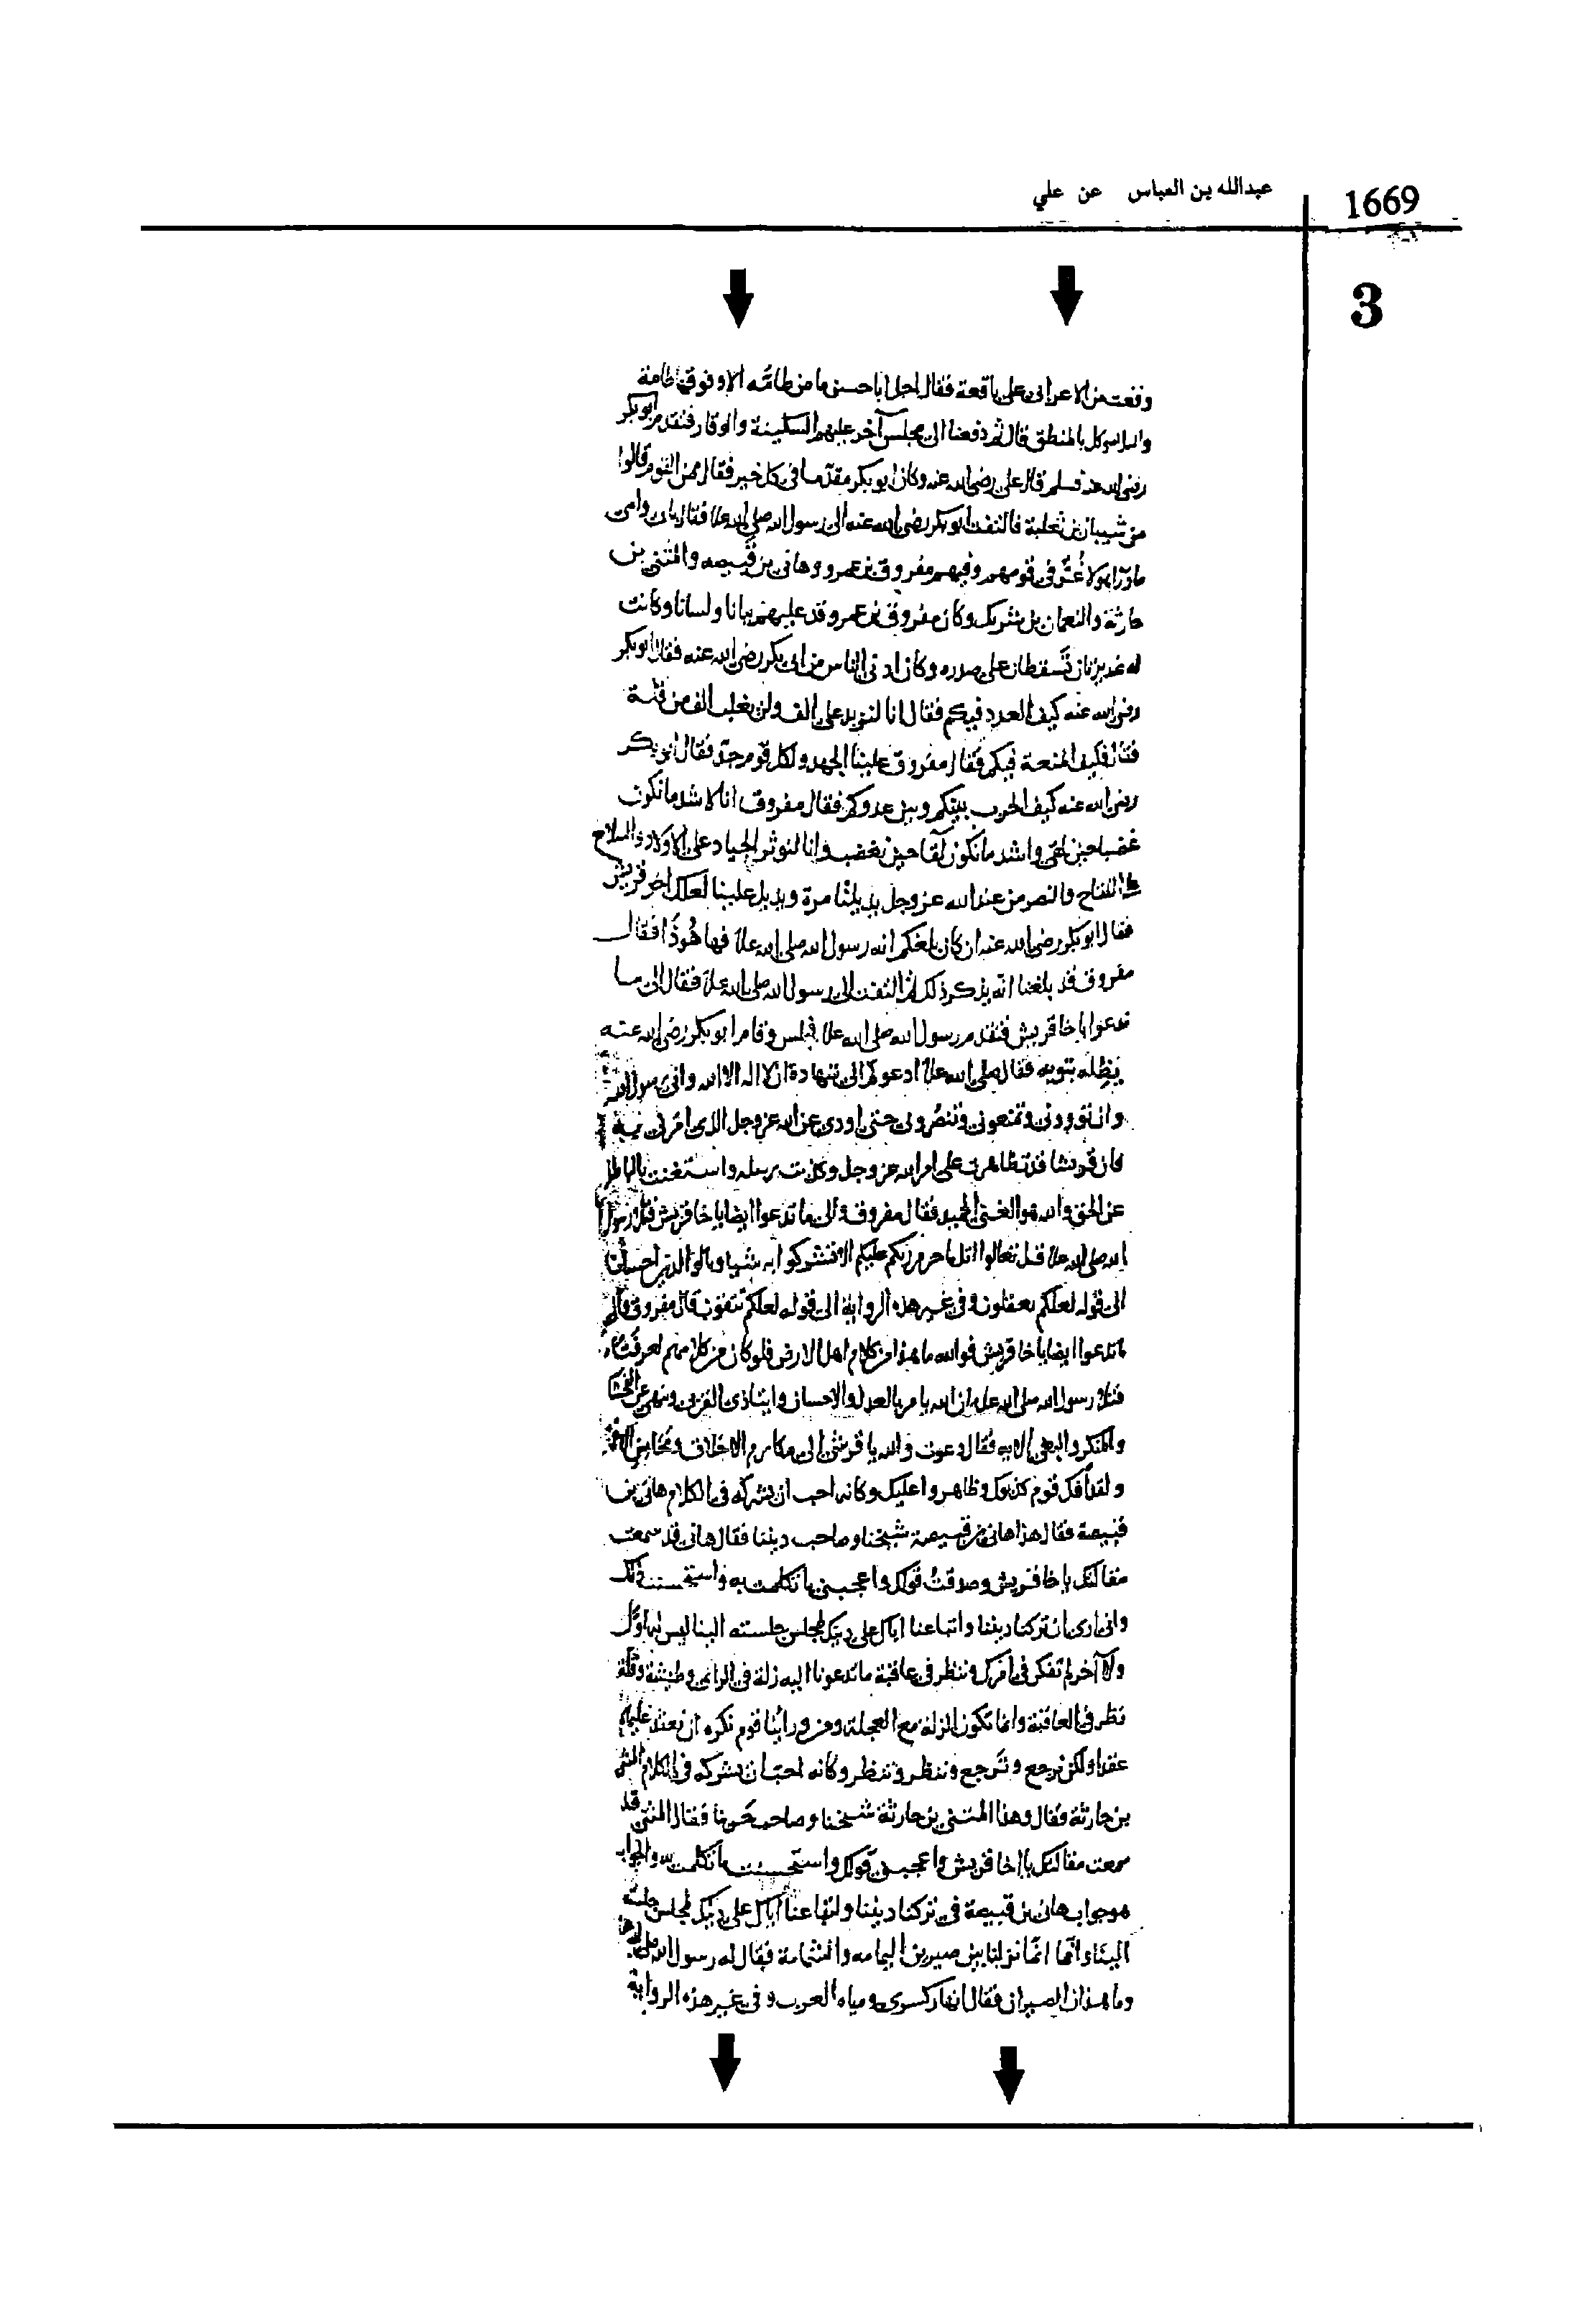 عبدالله بن العباس عن علي
1669
3
وقعت من الاعرابي على باقعة فقال اجل اباحسن ما من طامّه الا وفوقها طامة
والبلاء موكل بالمنطق قال ثم دفعنا الى مجلس آخر عليهم السكينة والوقار فتقدم ابوبكر
رضي الله عنه فسلم قال علي رضي الله عنه وكان ابو بكر مقدّما في كل خير فقال ممن القوم قالوا
من شيبان بن ثعلبة فالتفت ابو بكر رضي الله عنه الى رسول الله صلى الله علا فقال بابي وامي
ماورآ هولا عُزّ في قومهم وفيهم مفروق بن عمرو وهاني بن قبيصه والمثنى بن
حارثة والنعمان بن شريك وكان مفروق بن عمرو قد عليهم بيانا ولسانا وكانت
له غديرتان تَسقطان على صدره وكان ادنى الناس من ابي بكر رضي الله عنه فقال ابو بكر
رضي الله عنه كيف العدد فيكم فقال انا لنزيد على الف ولن يغلب الف من قلّة
فقال فكيف المنعة فيكم فقال مفروق علينا الجهد ولكل قوم جدّ فقال ابو بكر
رضي الله عنه كيف الحرب بينكم وبين عدوكم فقال مفروق انا لاشد ما نكون
غضبا حين نلقى واشد ما نكون لقا حين نغضب وانا لنوثر الجياد على الاولاد والسلاح
على اللقاح والنصر من عند الله عز وجل يديلنا مرة ويديل علينا لعلك اخو قريش
فقال ابو بكر رضي الله عنه ان كان بلغكم انه رسول الله صلى الله علا فها هُوَذا فقال
مفروق قد بلغنا انّه يذكر ذلك ثم التفت الى رسول الله صلى الله علا فقال الى ما
تدعوا يا خا قريش فتقدم رسول الله صلى الله علا فجلس وقام ابو بكر رضي الله عنه
يظلّه بثوبه فقال صلى الله علا ادعوكم الى شهادة ان لا اله الا الله واني رسول الله
وان تووني وتمنعوني وتنصروني حتى اودي عن الله عز وجل الذي امرني به
فان قريشا قد تظاهرت على امر الله عز وجل وكذبت رسله واستغنت بالباطل
عن الحق والله هو الغني الحميد فقال مفروق والى ما تدعوا ايضا يا خا قريش فتلا رسول
الله صلى الله علا قل تعالوا اتل ما حرم ربكم عليكم الا تشركوا به شيا وبالوالدين احسانا
الى قوله لعلكم تعقلون وفي غير هذه الرواية الى قوله لعلكم تتقون قال مفروق والى
ما تدعوا ايضا يا خا قريش فوالله ما هذا من كلام اهل الارض فلو كان من كلامهم لعرفناه
فتلا رسول الله صلى الله علا ان الله يامر بالعدل والاحسان وايتا ذي القربى وينهى عن الفحشا
والمنكر والبغي الايه فقال دعوت والله يا قرشي الى مكارم الاخلاق ومحاسن
ولقد اُفك قوم كذبوك وظاهروا عليك وكانه احب ان يشركه في الكلام هاني بن
قبيصة فقال هذا هاني بن قبيصة شيخنا وصاحب ديننا فقال هاني قد سمعت
مقالتك يا خا قريش وصدقتُ قولك واعجبني ما تكلمت به
واني ارى ان تركنا ديننا واتباعنا اياك على دينك لمجلس جلسته الينا ليس له اوّل
ولا آخر لم نفكر في امرك وننظر في عاقبة ما تدعونا اليه زلة في الراي وطيشة وقلّة
نظر في العاقبة وانما تكون الزلة مع العجلة ومن ورائنا قوم نكره ان نعقد عليهم
عقدا ولكن نرجع وترجع وننظر وتنظر وكانه احبّ ان يشركه في الكلام المثنى
بن حارثة فقال وهذا المثنى بن حارثة شيخنا وصاحب حربنا فقال المثنى قد
سمعت مقالتك يا اخا قريش واعجبني قولك واستحسنت ما تكلمت به والجواب
هو جواب هاني بن قبيصة في تركنا ديننا واتباعنا اياك على دينك لمجلس جلسته
الينا وانّما انّما نزلنا بين صيرين اليمامه والشامة فقال له رسول الله صلى الله علا
وما هذان الصيران فقال انهار كسرى ومياه العرب وفي غير هذه الرواية